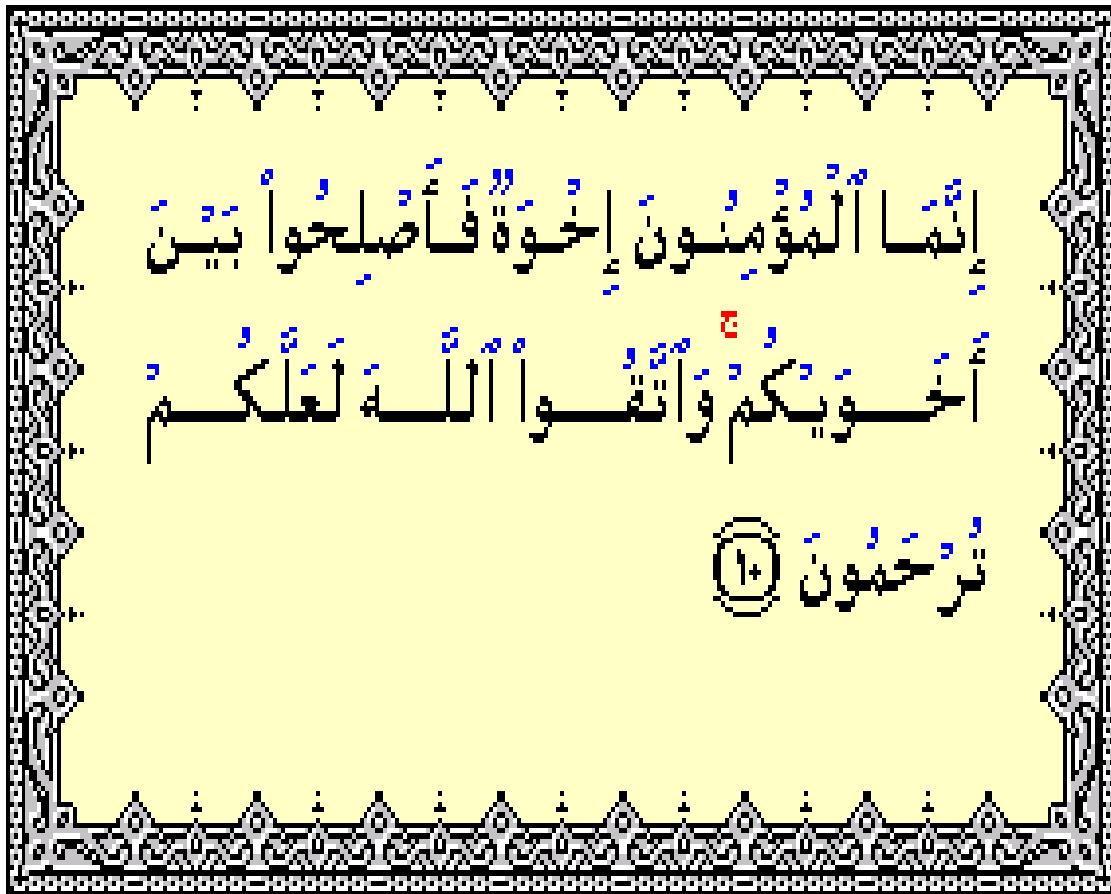 إِنَّمَا ٱلْمُؤْمِنُونَ إِخْوَةٌ فَأَصْلِحُوا۟ بَيْنَ
أَخَوَيْكُمْ ۚ وَٱتَّقُوا۟ ٱللَّهَ لَعَلَّكُمْ
تُرْحَمُونَ ١٠